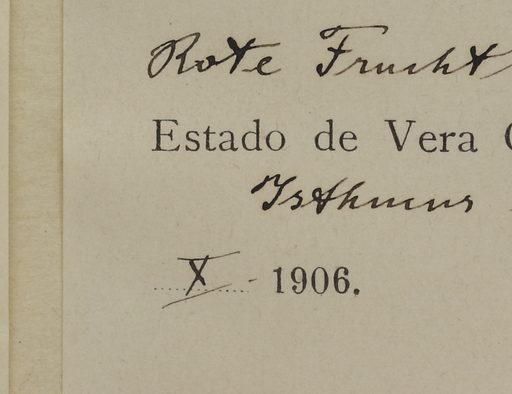 Rote Frucht
Estado de Vera
Isthmus
X - 1906.